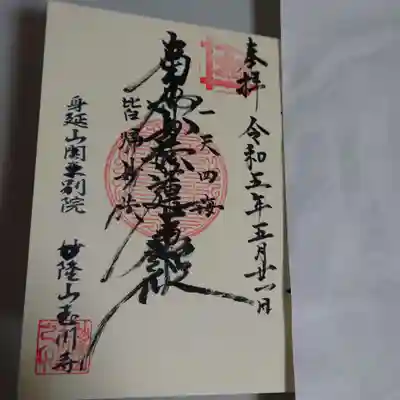 奉拝
令和五年五月廿一日
一天四海
南無妙法蓮華経
皆帰妙法
身延山関東別院
妙隆山玉川寺